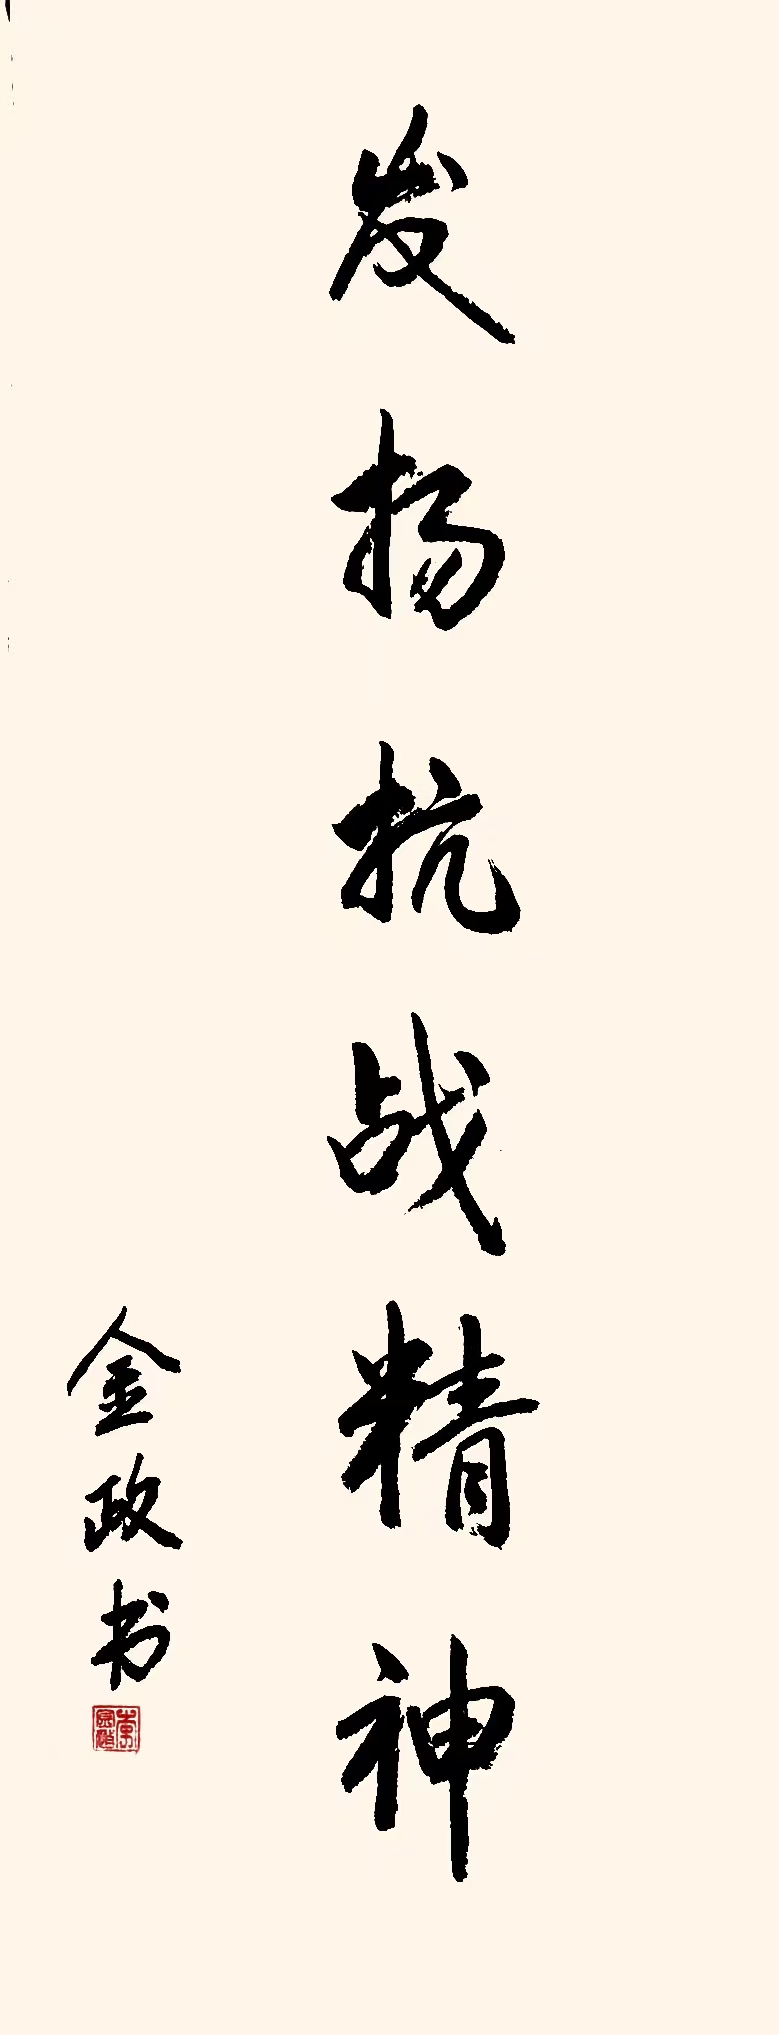 发扬抗战精神
金政书